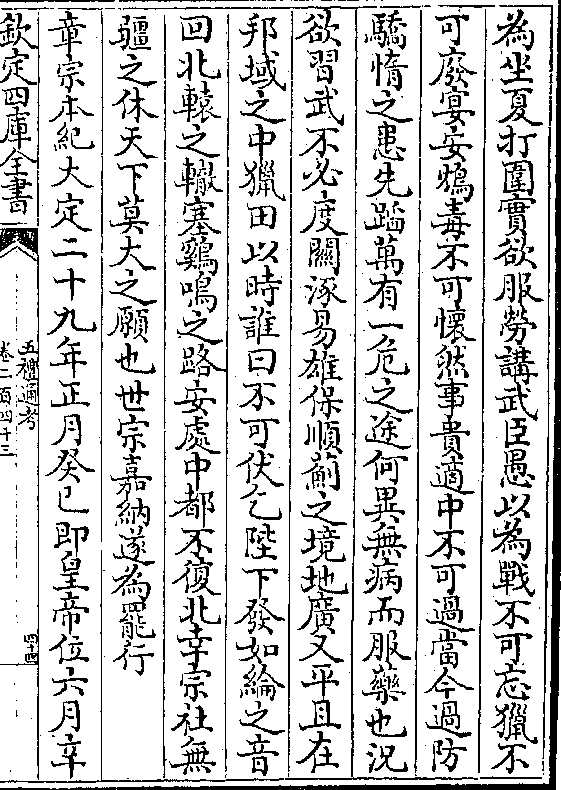 為坐夏打圍實欲服勞講武臣愚以為戰不可忘獵不
可廢宴安鴆毒不可懷然事貴適中不可過當今過防
驕惰之患先蹈萬有一危之途何異無病而服藥也況
欲習武不必度關涿易雄保順薊之境地廣又平且在
邦域之中獵田以時誰曰不可伏乞陛下發如綸之音
回北轅之轍塞鷄鳴之路安處中都不復北幸宗社無
疆之休天下莫大之願也世宗嘉納遂為罷行
章宗本紀大定二十九年正月癸巳即皇帝位六月辛
欽定四庫全書
五禮通考
卷二百四十三
四十四